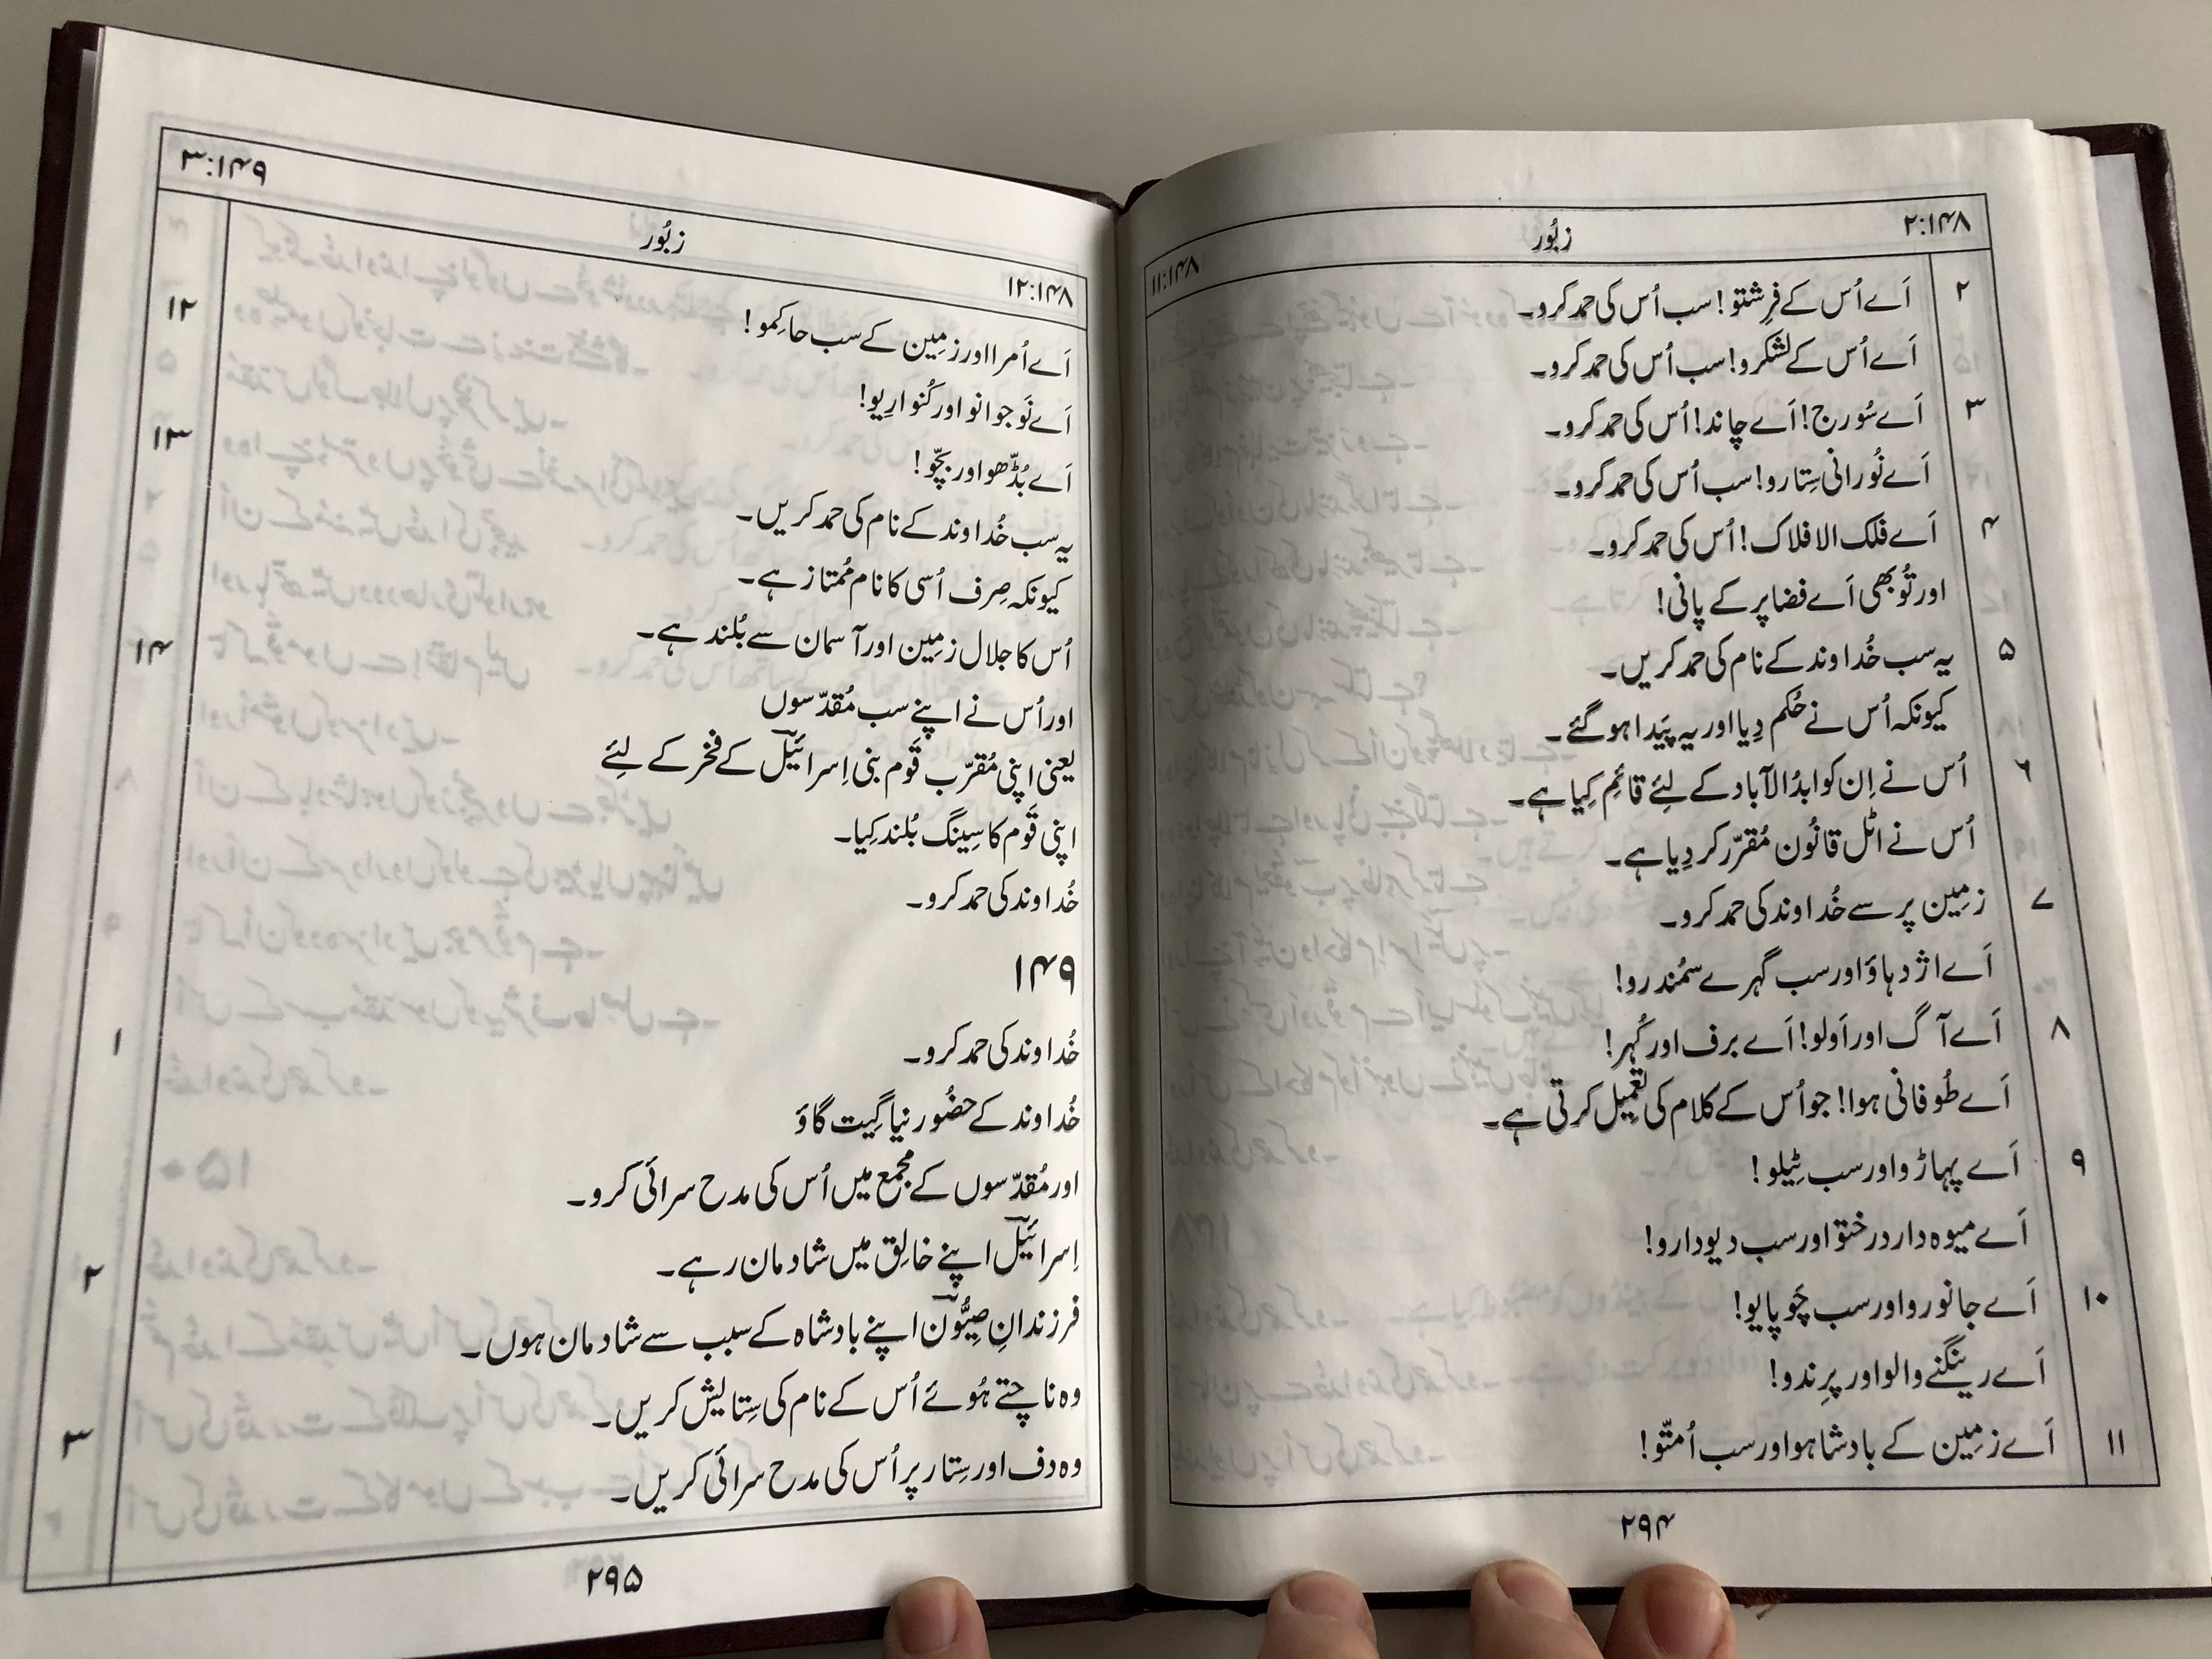 ۲:۱۴۸
زبُور
۱۱:۱۴۸
۲ اَے اُس کے فرِشتو! سب اُس کی حمد کرو۔
اَے اُس کے لشکرو! سب اُس کی حمد کرو۔
۳ اَے سُورج! اَے چاند! اُس کی حمد کرو۔
اَے نُورانی سِتارو! سب اُس کی حمد کرو۔
۴ اَے فلک الافلاک! اُس کی حمد کرو۔
اور تُو بھی اَے فضا پر کے پانی!
۵ یہ سب خُداوند کے نام کی حمد کریں۔
کیونکہ اُس نے حُکم دِیا اور یہ پَیدا ہو گئے۔
۶ اُس نے اِن کو ابدُالآباد کے لِئے قائِم کِیا ہے۔
اُس نے اٹل قانُون مُقرّر کر دِیا ہے۔
۷ زمِین پر سے خُداوند کی حمد کرو۔
اَے اژدہاؤ اور سب گہرے سمُندرو!
۸ اَے آگ اور اَولو! اَے برف اور کُہر!
اَے طُوفانی ہوا! جو اُس کے کلام کی تعمِیل کرتی ہے۔
۹ اَے پہاڑو اور سب ٹِیلو!
اَے میوہ دار درختو اور سب دیودارو!
۱۰ اَے جانورو اور سب چَوپایو!
اَے رینگنے والو اور پرِندو!
۱۱ اَے زمِین کے بادشاہو اور سب اُمتّو!
۲۹۴
۱۲:۱۴۸
زبُور
۳:۱۴۹
اَے اُمرا اور زمِین کے سب حاکِمو!
۱۲ اَے نَوجوانو اور کُنواریو!
اَے بُڈّھو اور بچّو!
۱۳ یہ سب خُداوند کے نام کی حمد کریں۔
کیونکہ صِرف اُسی کا نام مُمتاز ہے۔
اُس کا جلال زمِین اور آسمان سے بُلند ہے۔
۱۴ اور اُس نے اپنے سب مُقدّسوں
یعنی اپنی مُقرّب قَوم بنی اِسرائیلؔ کے فخر کے لِئے
اپنی قَوم کا سِینگ بُلند کِیا۔
خُداوند کی حمد کرو۔
۱۴۹
۱ خُداوند کی حمد کرو۔
خُداوند کے حضُور نیا گِیت گاؤ
اور مُقدّسوں کے مجمع میں اُس کی مدح سرائی کرو۔
۲ اِسرائیلؔ اپنے خالِق میں شادمان رہے۔
فرزندانِ صِیُّونؔ اپنے بادشاہ کے سبب سے شادمان ہوں۔
۳ وہ ناچتے ہُوئے اُس کے نام کی سِتایش کریں۔
وہ دف اور سِتار پر اُس کی مدح سرائی کریں۔
۲۹۵